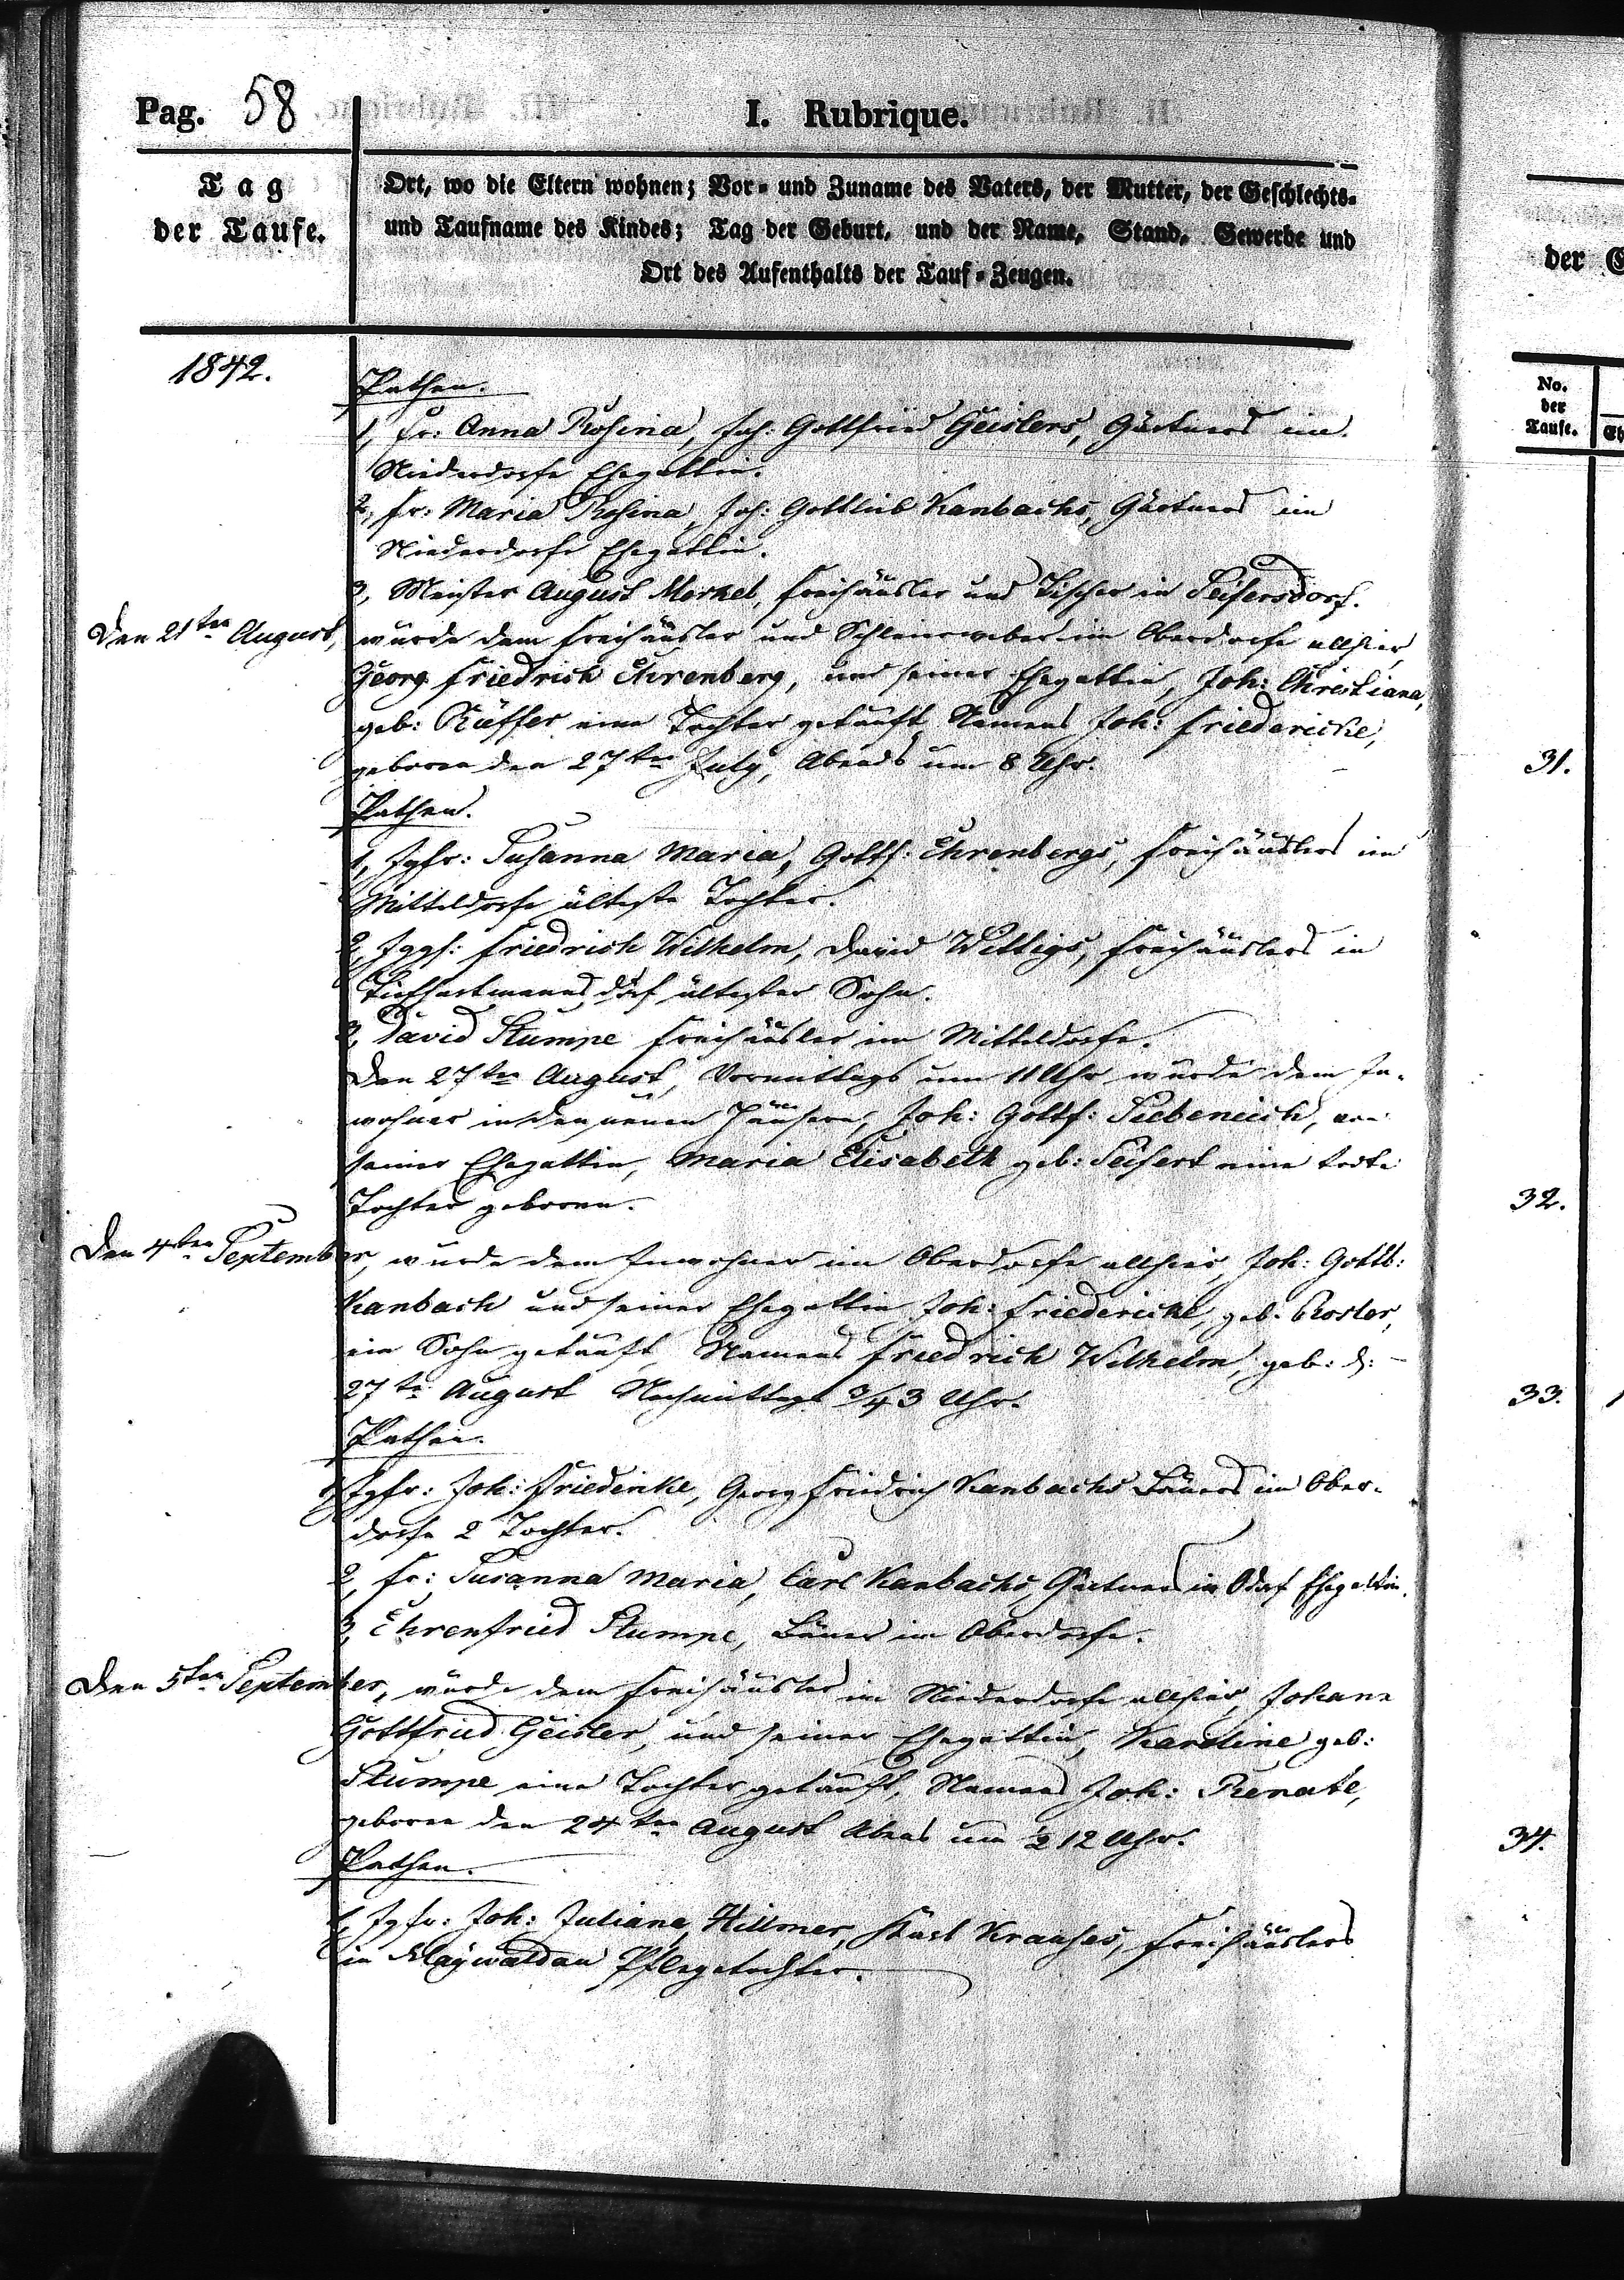 Pag. 58
I. Rubrique.
Tag
der Taufe.
Ort, wo die Eltern wohnen; Vor- und Zuname des Vaters, der Mutter, der Geschlechts-
und Taufname des Kindes; Tag der Geburt, und der Name, Stand, Gewerbe und
Ort des Aufenthalts der Tauf-Zeugen.
1842.
Pathen.
1, Fr: Anna Rosina, Joh: Gottfried Geislers, Gärtners im
Niederdorfe Ehegattin.
2, Fr: Maria Rosina, Joh: Gottlieb Kanbachs, Gärtners im
Niederdorfe Ehegattin.
3, Meister August Merkel, Freihäusler und Tischer in Seifersdorf.
Den 21ten August, wurde dem Freihäusler und Schleierweber im Oberdorfe allhier,
Georg Friedrich Ehrenberg, und seiner Ehegattin, Joh: Christiana,
geb: Rüffer eine Tochter getauft, Namens Joh: Friedericke,
geboren den 27ten July, Abends um 8 Uhr.
Pathen.
1, Jgfr: Susanna Maria, Gottf: Ehrenbergs, Freihäuslers im
Mitteldorfe älteste Tochter.
2, Jggs: Friedrich Wilhelm, David Wittigs, Freihäuslers in
Tiefhartmannsdorf ältester Sohn.
3, David Stumpe Freihäusler im Mitteldorfe.
Den 27ten August, Vormittags um 11 Uhr wurde dem In-
wohner in den neuen Häusern, Joh: Gottf: Siebeneich, von
seiner Ehegattin, Maria Elisabeth geb: Seifert eine todte
Tochter geboren.
Den 4ten September, wurde dem Inwohner im Oberdorfe allhier, Joh: Gottb:
Kanbach und seiner Ehegattin Joh: Friedericke, geb:
ein Sohn getauft, Namens Friedrich Wilhelm, geb: d:
27te August Nachmittags 3/4 3 Uhr.
Pathen.
1, Jgfr: Joh: Friederike, Georg Friedrich Kanbachs Bauers im Ober-
dorfe 2 Tochter.
2, Fr: Susanna Maria, Carl Kanbachs, Gärtners in Odorf Ehegattin.
3, Ehrenfried Stumpe, Bauer im Oberdorfe.
Den 5ten September, wurde dem Freihäusler im Niederdorfe allhier, Johann
Gottfried Geisler, und seiner Ehegattin, Karoline geb:
Stumpe eine Tochter getauft, Namens Joh: Renate,
geboren den 24ten August Abends um 1/2 12 Uhr.
Pathen.
1, Jgfr: Joh: Juliane Hillmer, Karl Krauses, Freihäuslers
in Maywaldau Pflegetochter.
der
No.
der
Taufe.
31.
32.
33.
34.